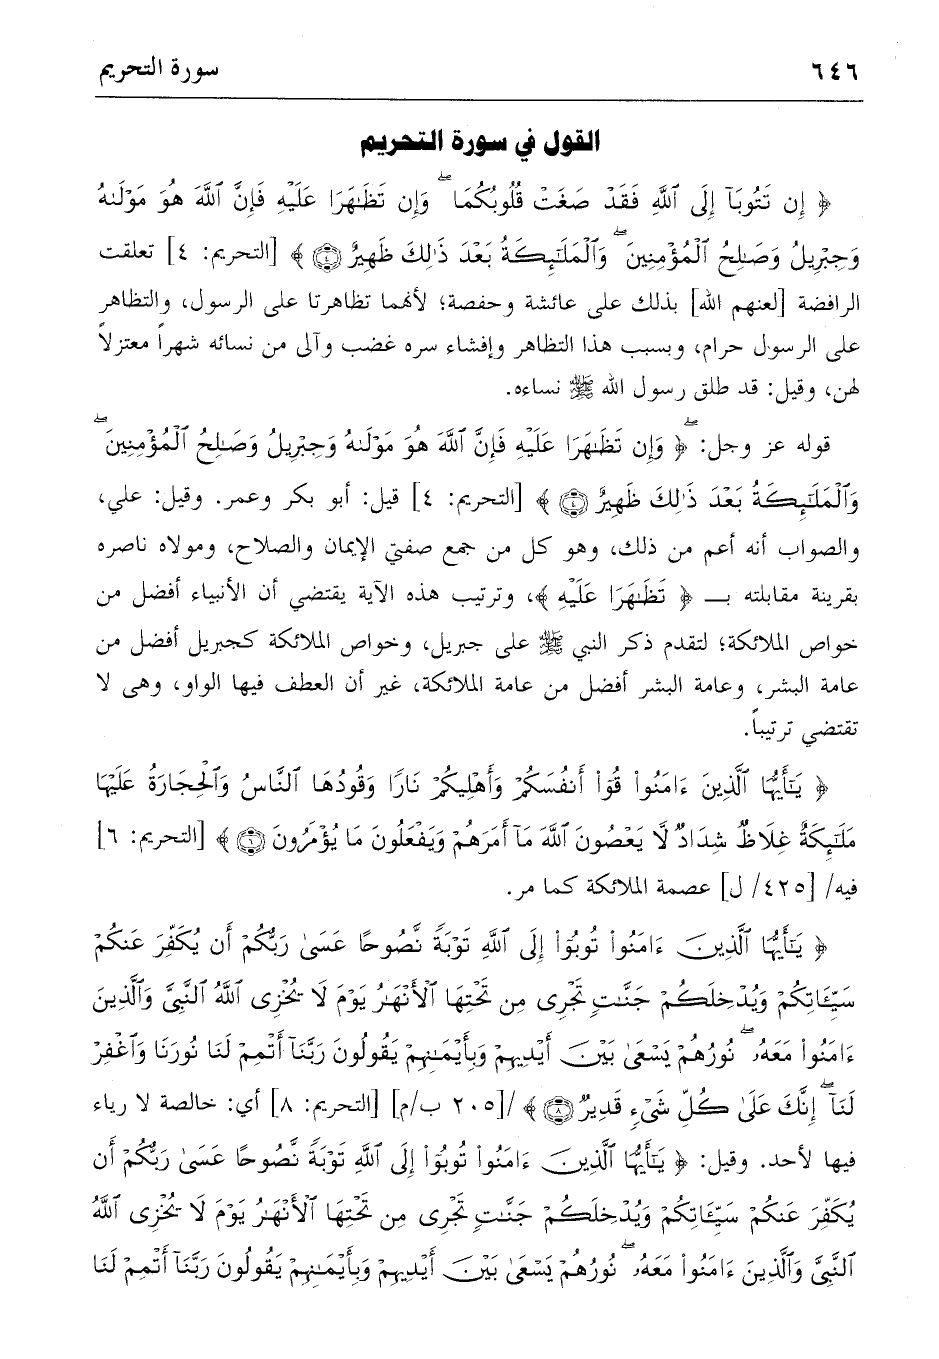 ٦٤٦ سورة التحريم
القول في سورة التحريم
﴿ إِن تَتُوبَآ إِلَى ٱللَّهِ فَقَدْ صَغَتْ قُلُوبُكُمَا ۖ وَإِن تَظَٰهَرَا عَلَيْهِ فَإِنَّ ٱللَّهَ هُوَ مَوْلَىٰهُ
وَجِبْرِيلُ وَصَٰلِحُ ٱلْمُؤْمِنِينَ ۖ وَٱلْمَلَٰٓئِكَةُ بَعْدَ ذَٰلِكَ ظَهِيرٌ ۝٤ ﴾ [التحريم: ٤] تعلقت
الرافضة [لعنهم الله] بذلك على عائشة وحفصة؛ لأنهما تظاهرتا على الرسول، والتظاهر
على الرسول حرام، وبسبب هذا التظاهر وإفشاء سره غضب وآلى من نسائه شهراً معتزلاً
لهن، وقيل: قد طلق رسول الله ﷺ نساءه.
قوله عز وجل: ۖ ﴿ وَإِن تَظَٰهَرَا عَلَيْهِ فَإِنَّ ٱللَّهَ هُوَ مَوْلَىٰهُ وَجِبْرِيلُ وَصَٰلِحُ ٱلْمُؤْمِنِينَ ۖ
وَٱلْمَلَٰٓئِكَةُ بَعْدَ ذَٰلِكَ ظَهِيرٌ ۝٤ ﴾ [التحريم: ٤] قيل: أبو بكر وعمر. وقيل: علي،
والصواب أنه أعم من ذلك، وهو كل من جمع صفتي الإيمان والصلاح، ومولاه ناصره
بقرينة مقابلته بـ ﴿ تَظَٰهَرَا عَلَيْهِ ﴾، وترتيب هذه الآية يقتضي أن الأنبياء أفضل من
خواص الملائكة؛ لتقدم ذكر النبي ﷺ على جبريل، وخواص الملائكة كجبريل أفضل من
عامة البشر، وعامة البشر أفضل من عامة الملائكة، غير أن العطف فيها الواو، وهى لا
تقتضي ترتيباً.
﴿ يَٰٓأَيُّهَا ٱلَّذِينَ ءَامَنُوا۟ قُوٓا۟ أَنفُسَكُمْ وَأَهْلِيكُمْ نَارًا وَقُودُهَا ٱلنَّاسُ وَٱلْحِجَارَةُ عَلَيْهَا
مَلَٰٓئِكَةٌ غِلَاظٌ شِدَادٌ لَّا يَعْصُونَ ٱللَّهَ مَآ أَمَرَهُمْ وَيَفْعَلُونَ مَا يُؤْمَرُونَ ۝٦ ﴾ [التحريم: ٦]
فيه/ [٤٢٥/ ل] عصمة الملائكة كما مر.
﴿ يَٰٓأَيُّهَا ٱلَّذِينَ ءَامَنُوا۟ تُوبُوٓا۟ إِلَى ٱللَّهِ تَوْبَةً نَّصُوحًا عَسَىٰ رَبُّكُمْ أَن يُكَفِّرَ عَنكُمْ
سَيِّـَٔاتِكُمْ وَيُدْخِلَكُمْ جَنَّٰتٍ تَجْرِى مِن تَحْتِهَا ٱلْأَنْهَٰرُ يَوْمَ لَا يُخْزِى ٱللَّهُ ٱلنَّبِىَّ وَٱلَّذِينَ
ءَامَنُوا۟ مَعَهُۥ ۖ نُورُهُمْ يَسْعَىٰ بَيْنَ أَيْدِيهِمْ وَبِأَيْمَٰنِهِمْ يَقُولُونَ رَبَّنَآ أَتْمِمْ لَنَا نُورَنَا وَٱغْفِرْ
لَنَآ ۖ إِنَّكَ عَلَىٰ كُلِّ شَىْءٍ قَدِيرٌ ۝٨ ﴾ /[٢٠٥ ب/م] [التحريم: ٨] أي: خالصة لا رياء
فيها لأحد. وقيل: ﴿ يَٰٓأَيُّهَا ٱلَّذِينَ ءَامَنُوا۟ تُوبُوٓا۟ إِلَى ٱللَّهِ تَوْبَةً نَّصُوحًا عَسَىٰ رَبُّكُمْ أَن
يُكَفِّرَ عَنكُمْ سَيِّـَٔاتِكُمْ وَيُدْخِلَكُمْ جَنَّٰتٍ تَجْرِى مِن تَحْتِهَا ٱلْأَنْهَٰرُ يَوْمَ لَا يُخْزِى ٱللَّهُ
ٱلنَّبِىَّ وَٱلَّذِينَ ءَامَنُوا۟ مَعَهُۥ ۖ نُورُهُمْ يَسْعَىٰ بَيْنَ أَيْدِيهِمْ وَبِأَيْمَٰنِهِمْ يَقُولُونَ رَبَّنَآ أَتْمِمْ لَنَا